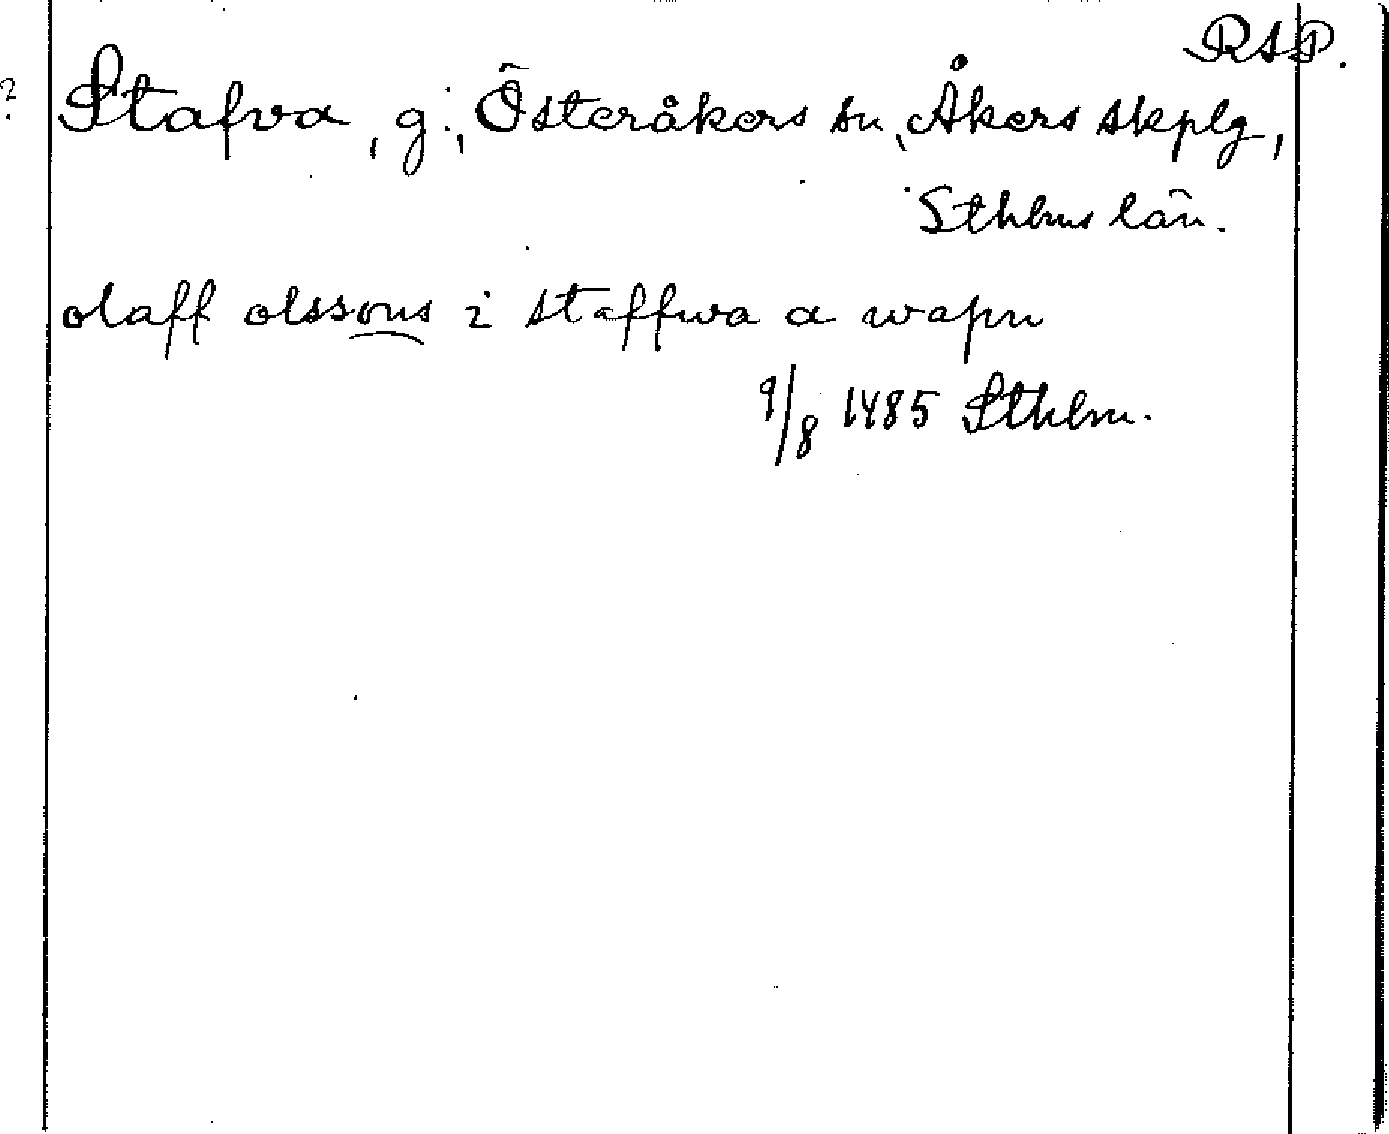 RAP.
? Stafva, g., Österåkers sn, Åkers skplg,
Sthlms län.
olaff olssons i staffwa a wapn
9/8 1485 Sthlm.